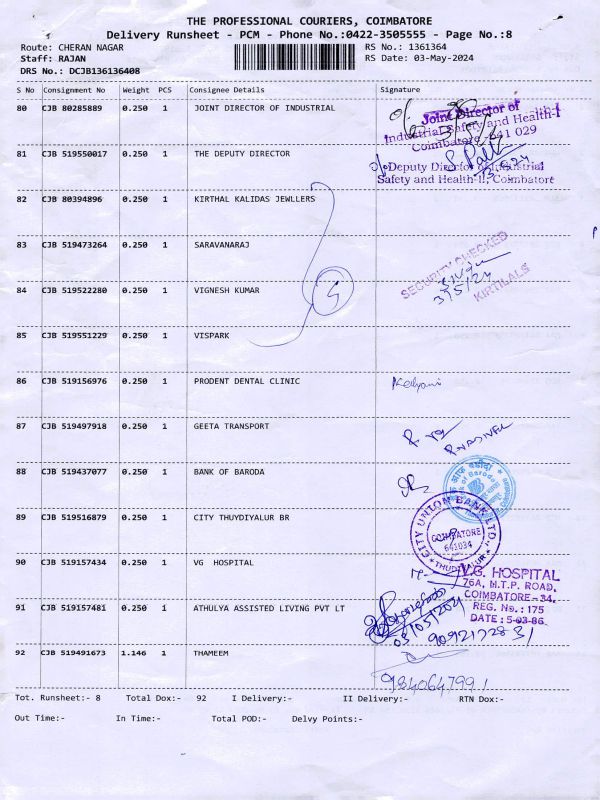 THE PROFESSIONAL COURIERS, COIMBATORE
Delivery Runsheet - PCM - Phone No.:0422-3505555 - Page No.:8
Route: CHERAN NAGAR RS No.: 1361364
Staff: RAJAN RS Date: 03-May-2024
DRS No.: DCJB136136408
S No Consignment No Weight PCS Consignee Details Signature
80 CJB 80285889 0.250 1 JOINT DIRECTOR OF INDUSTRIAL
Joint Director of
Industrial Safety and Health-I
Coimbatore - 641 029
81 CJB 519550017 0.250 1 THE DEPUTY DIRECTOR
Deputy Director of Industrial
Safety and Health-II, Coimbatore
82 CJB 80394896 0.250 1 KIRTHAL KALIDAS JEWLLERS
83 CJB 519473264 0.250 1 SARAVANARAJ
SECURITY CHECKED
3/5/24
KIRTILALS
84 CJB 519522280 0.250 1 VIGNESH KUMAR
85 CJB 519551229 0.250 1 VISPARK
86 CJB 519156976 0.250 1 PRODENT DENTAL CLINIC
Kalyani
87 CJB 519497918 0.250 1 GEETA TRANSPORT
88 CJB 519437077 0.250 1 BANK OF BARODA
89 CJB 519516879 0.250 1 CITY THUYDIYALUR BR
CITY UNION BANK LTD.
COIMBATORE
641034
THUDIYALUR
90 CJB 519157434 0.250 1 VG HOSPITAL
V.G. HOSPITAL
76A, M.T.P. ROAD,
COIMBATORE-34.
REG. No.: 175
DATE: 5-03-86.
91 CJB 519157481 0.250 1 ATHULYA ASSISTED LIVING PVT LT
03/05/2024
92 CJB 519491673 1.146 1 THAMEEM
9840647991
Tot. Runsheet:- 8 Total Dox:- 92 I Delivery:- II Delivery:- RTN Dox:-
Out Time:- In Time:- Total POD:- Delvy Points:-